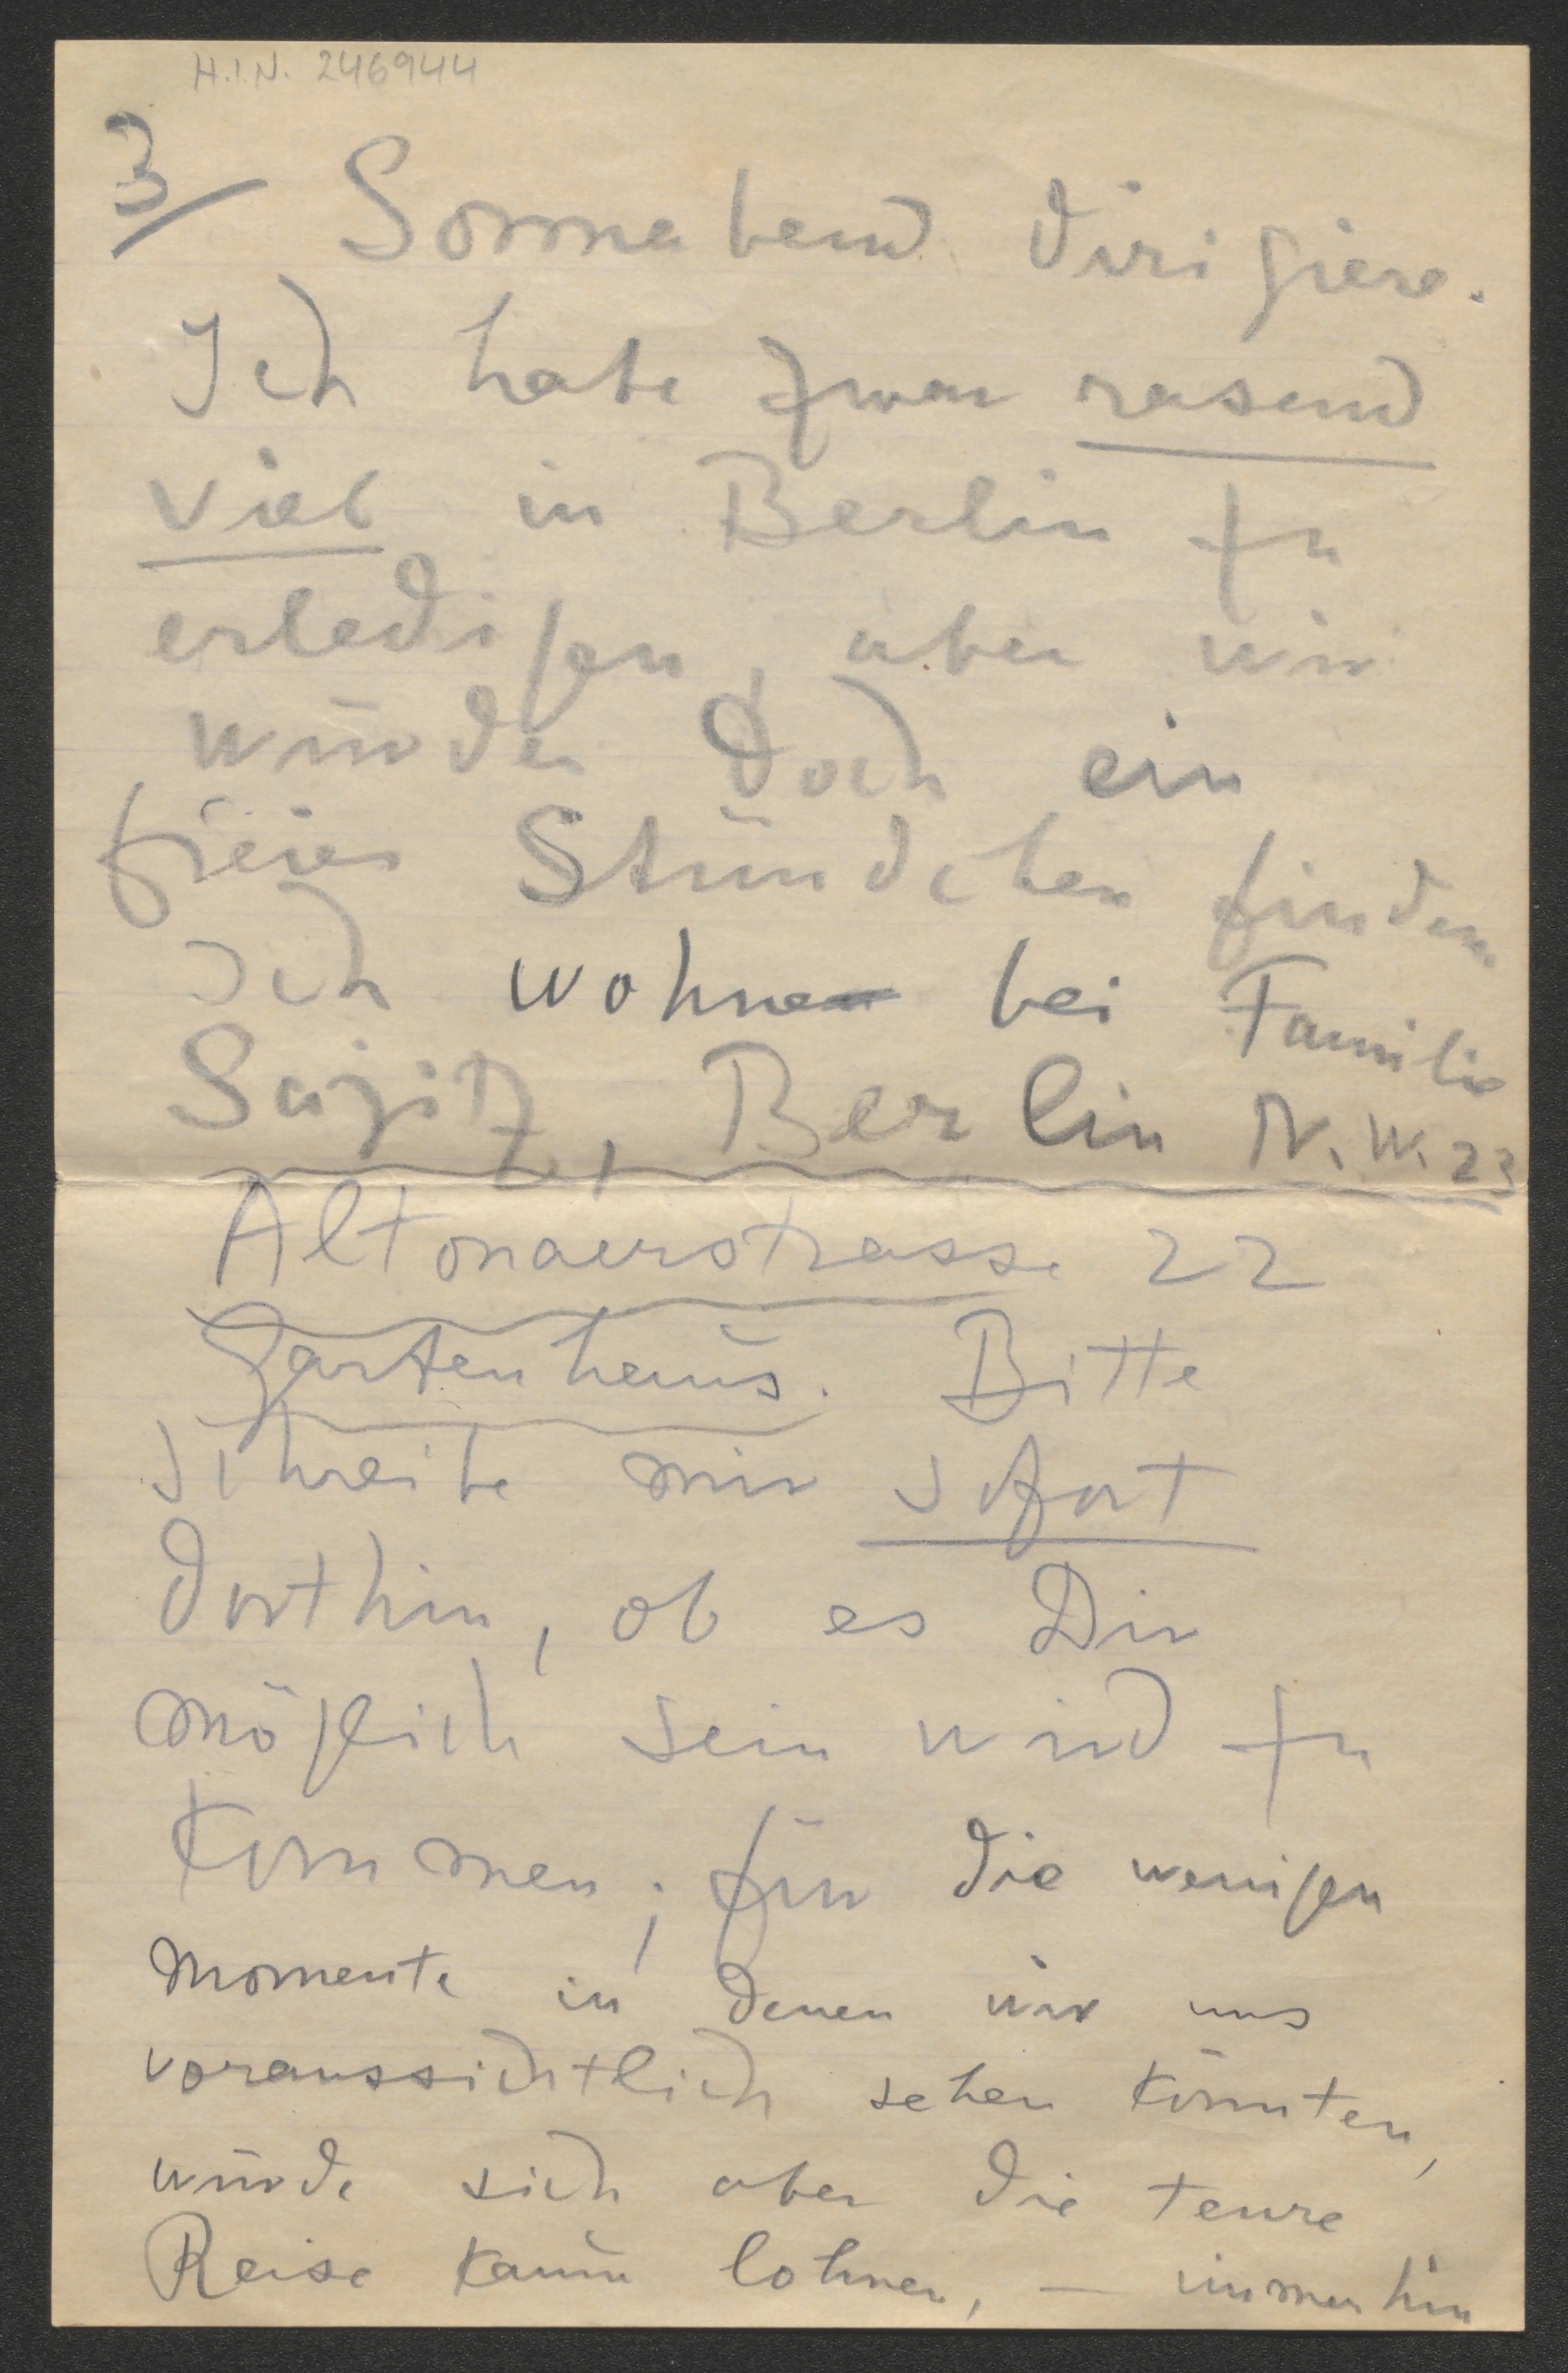 H.I.N. 246944
3/ Sonnabend dirigiere.
Ich habe zwar rasend
viel in Berlin zu
erledigen, aber wir
würden doch ein
freies Stündchen finden
Ich wohne bei Familie
Berlin N.W. 23
Altonaerstrasse 22
Gartenhaus. Bitte
schreibe mir sofort
dorthin, ob es Dir
möglich sein wird zu
kommen; für die wenigen
Momente in denen wir uns
voraussichtlich sehen könnten,
würde sich aber die teure
Reise kaum lohnen, – immerhin